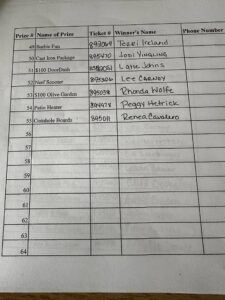 Prize # Name of Prize Ticket # Winner's Name Phone Number
49 Barbie Fun 893069 Terri Ireland
50 Cast Iron Package 895470 Jodi Yingling
51 $100 DoorDash Lane Johns
52 Nerf Scooter Lee Carnby
53 $100 Olive Garden 895038 Rhonda Wolfe
54 Patio Heater Peggy Hetrick
55 Cornhole Boards 895011 Renea Cavalero
56
57
58
59
60
61
62
63
64